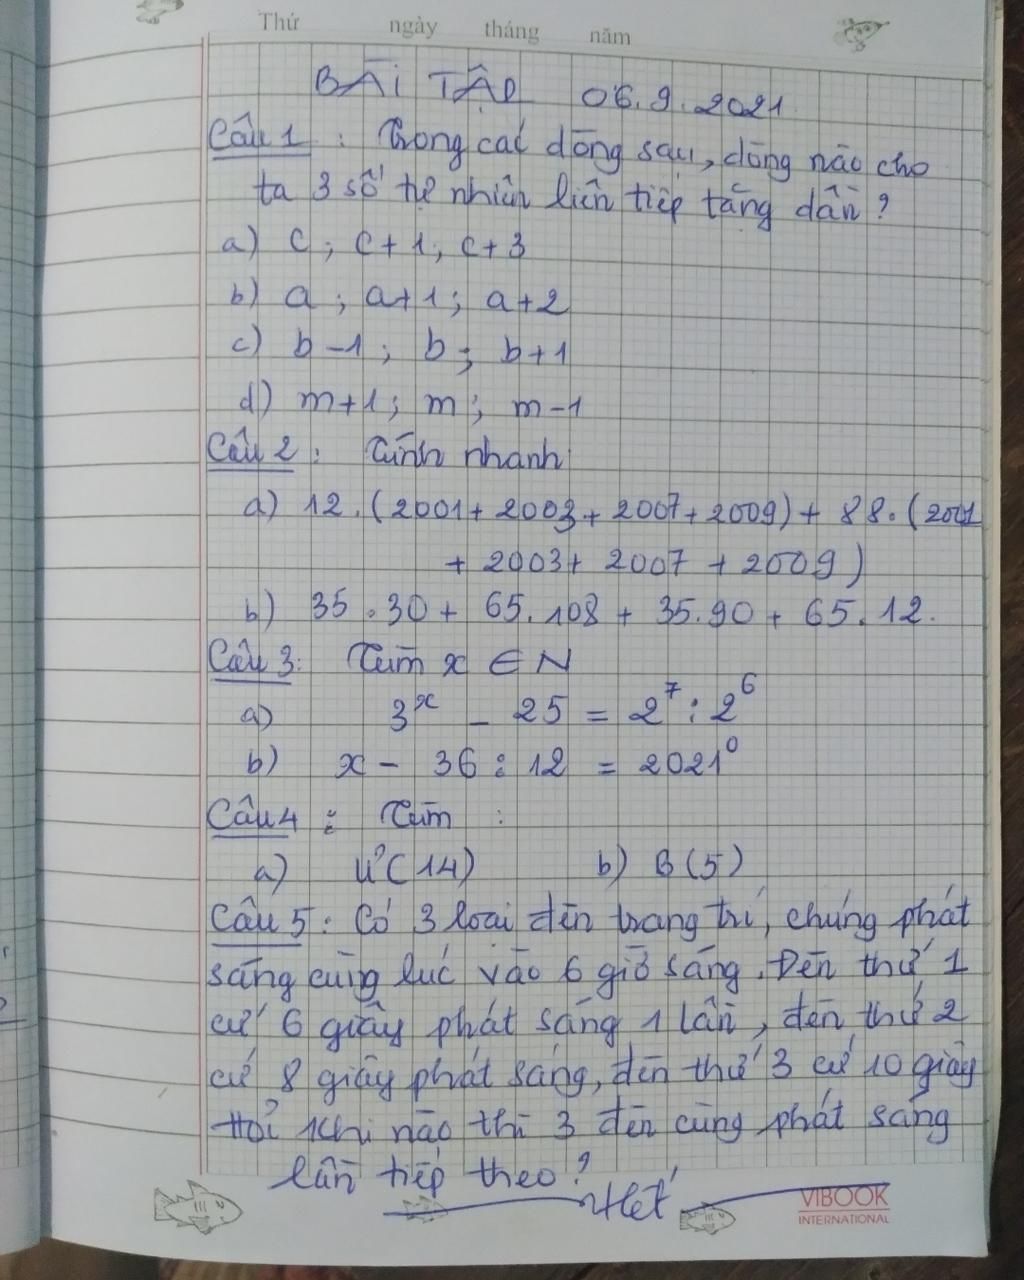 Thứ ngày tháng năm
BÀI TẬP 06.9.2021
Câu 1 : Trong các dòng sau, dòng nào cho
ta 3 số tự nhiên liên tiếp tăng dần?
a) c ; c+1; c+3
b) a ; a+1; a+2
c) b-1; b; b+1
d) m+1; m; m-1
Câu 2 : Tính nhanh
a) 12.(2001+2003+2007+2009)+ 88.(2001
+ 2003+ 2007 + 2009)
b) 35.30+ 65.108 + 35.90 + 65.12.
Câu 3: Tìm x ∈ N
a) 3ˣ - 25 = 2⁷ : 2⁶
b) x - 36 : 12 = 2021⁰
Câu 4 : Tìm :
a) Ư(14) b) B(5)
Câu 5 : Có 3 loại đèn trang trí, chúng phát
sáng cùng lúc vào 6 giờ sáng. Đèn thứ 1
cứ 6 giây phát sáng 1 lần, đèn thứ 2
cứ 8 giây phát sáng, đèn thứ 3 cứ 10 giây
Hỏi khi nào thì 3 đèn cùng phát sáng
lần tiếp theo?
Hết
VIBOOK
INTERNATIONAL